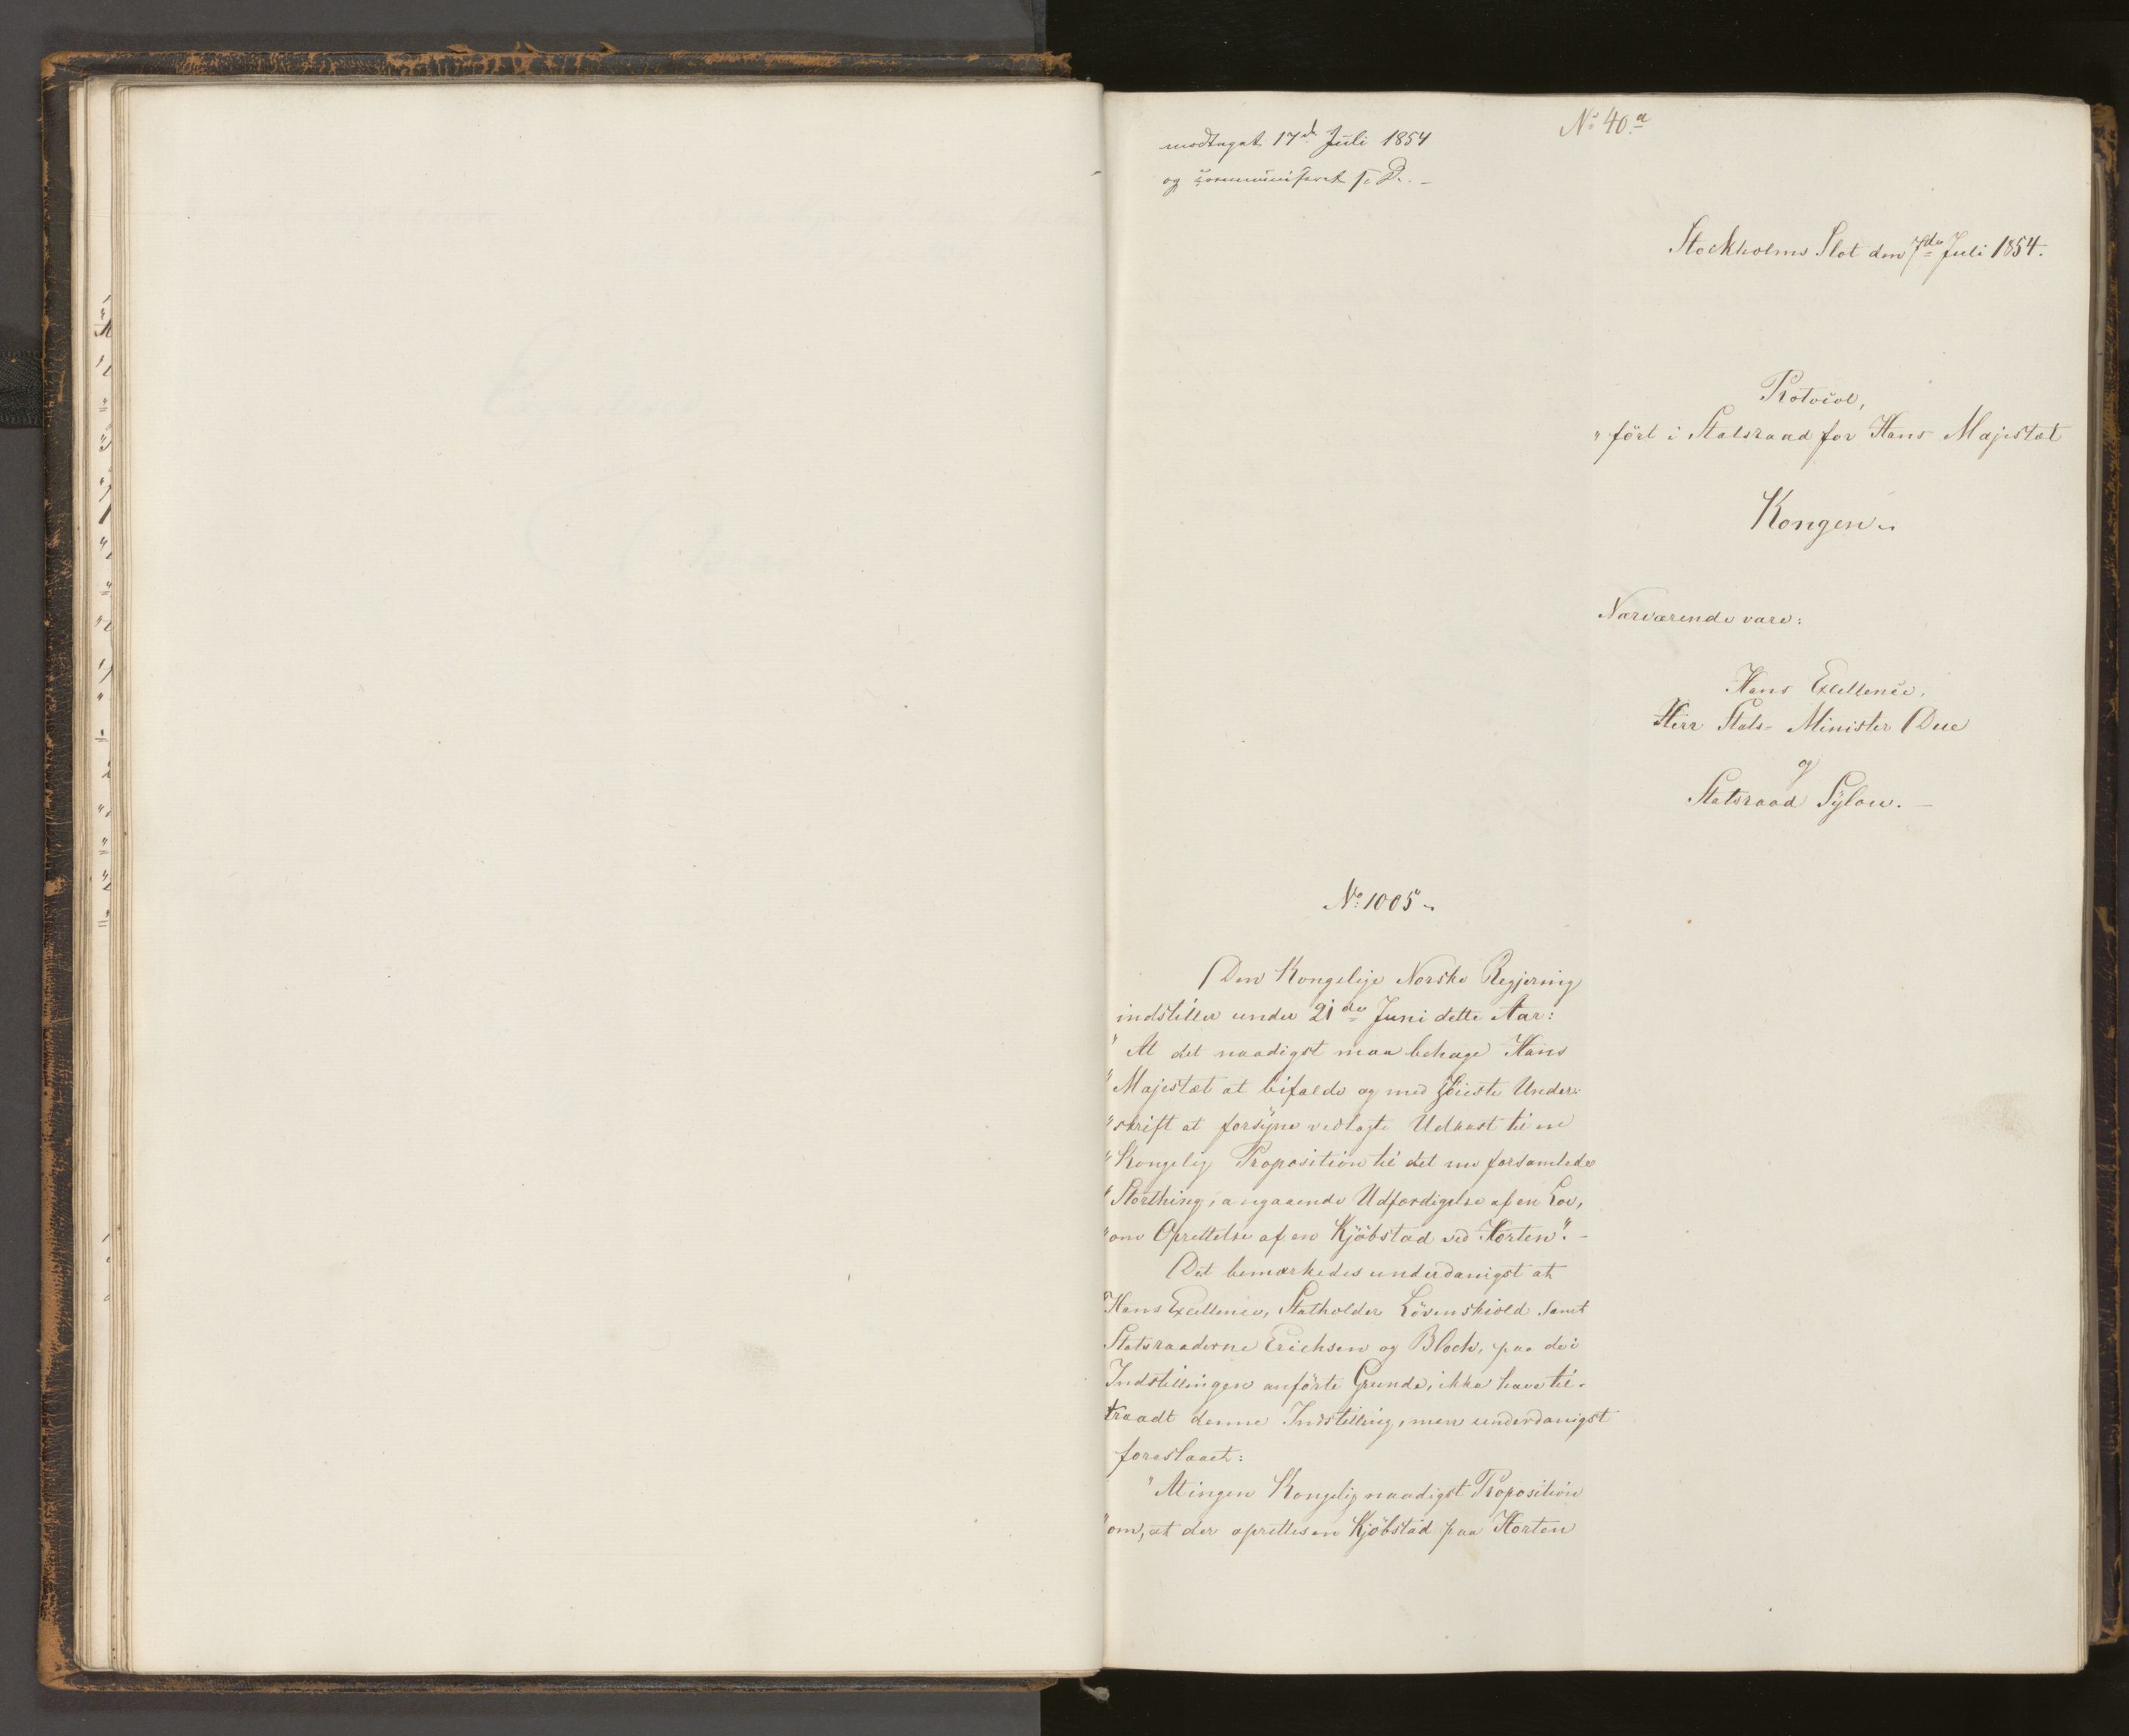 No 40.a
modtaget 17d Juli 1854
og communiseret s. D. –
Stockholms Slot den 7de Juli 1854.
Protocol,
ført i Statsraad for Hans Majestæt
Kongen.
Nærværende vare:
Hans Excellence,
Herr Stats-Minister Due
og
Statsraad Sylow. –
No: 1005.
Den Kongelige Norske Regjering
indstiller under 21de Juni dette Aar:
"At det naadigst maa behage Hans
"Majestæt at bifalde og med Høieste Under-
"skrift at forsyne vedlagte Udkast til en
"Kongelig Proposition til det nu forsamlede
"Storthing, angaaende Udfærdigelse af en Lov,
"om Oprettelse af en Kjöbstad ved Horten". –
Det bemærkedes underdanigst at
Hans Excellence, Statholder Lövenskiold samt
Statsraaderne Erichsen og Bloch, paa de i
Indstillingen anförte Grunde, ikke have til-
traadt denne Indstilling, men underdanigst
foreslaaet:
"At ingen Kongelig naadigst Proposition
"om, at der oprettes en Kjöbstad paa Horten